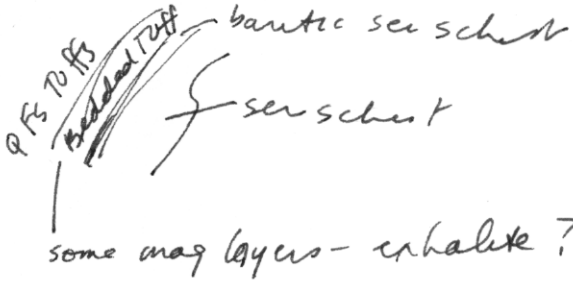 QFS Tuffs
Bedded Tuff
baritic ser schist
ser schist
some mag layers - exhalite?